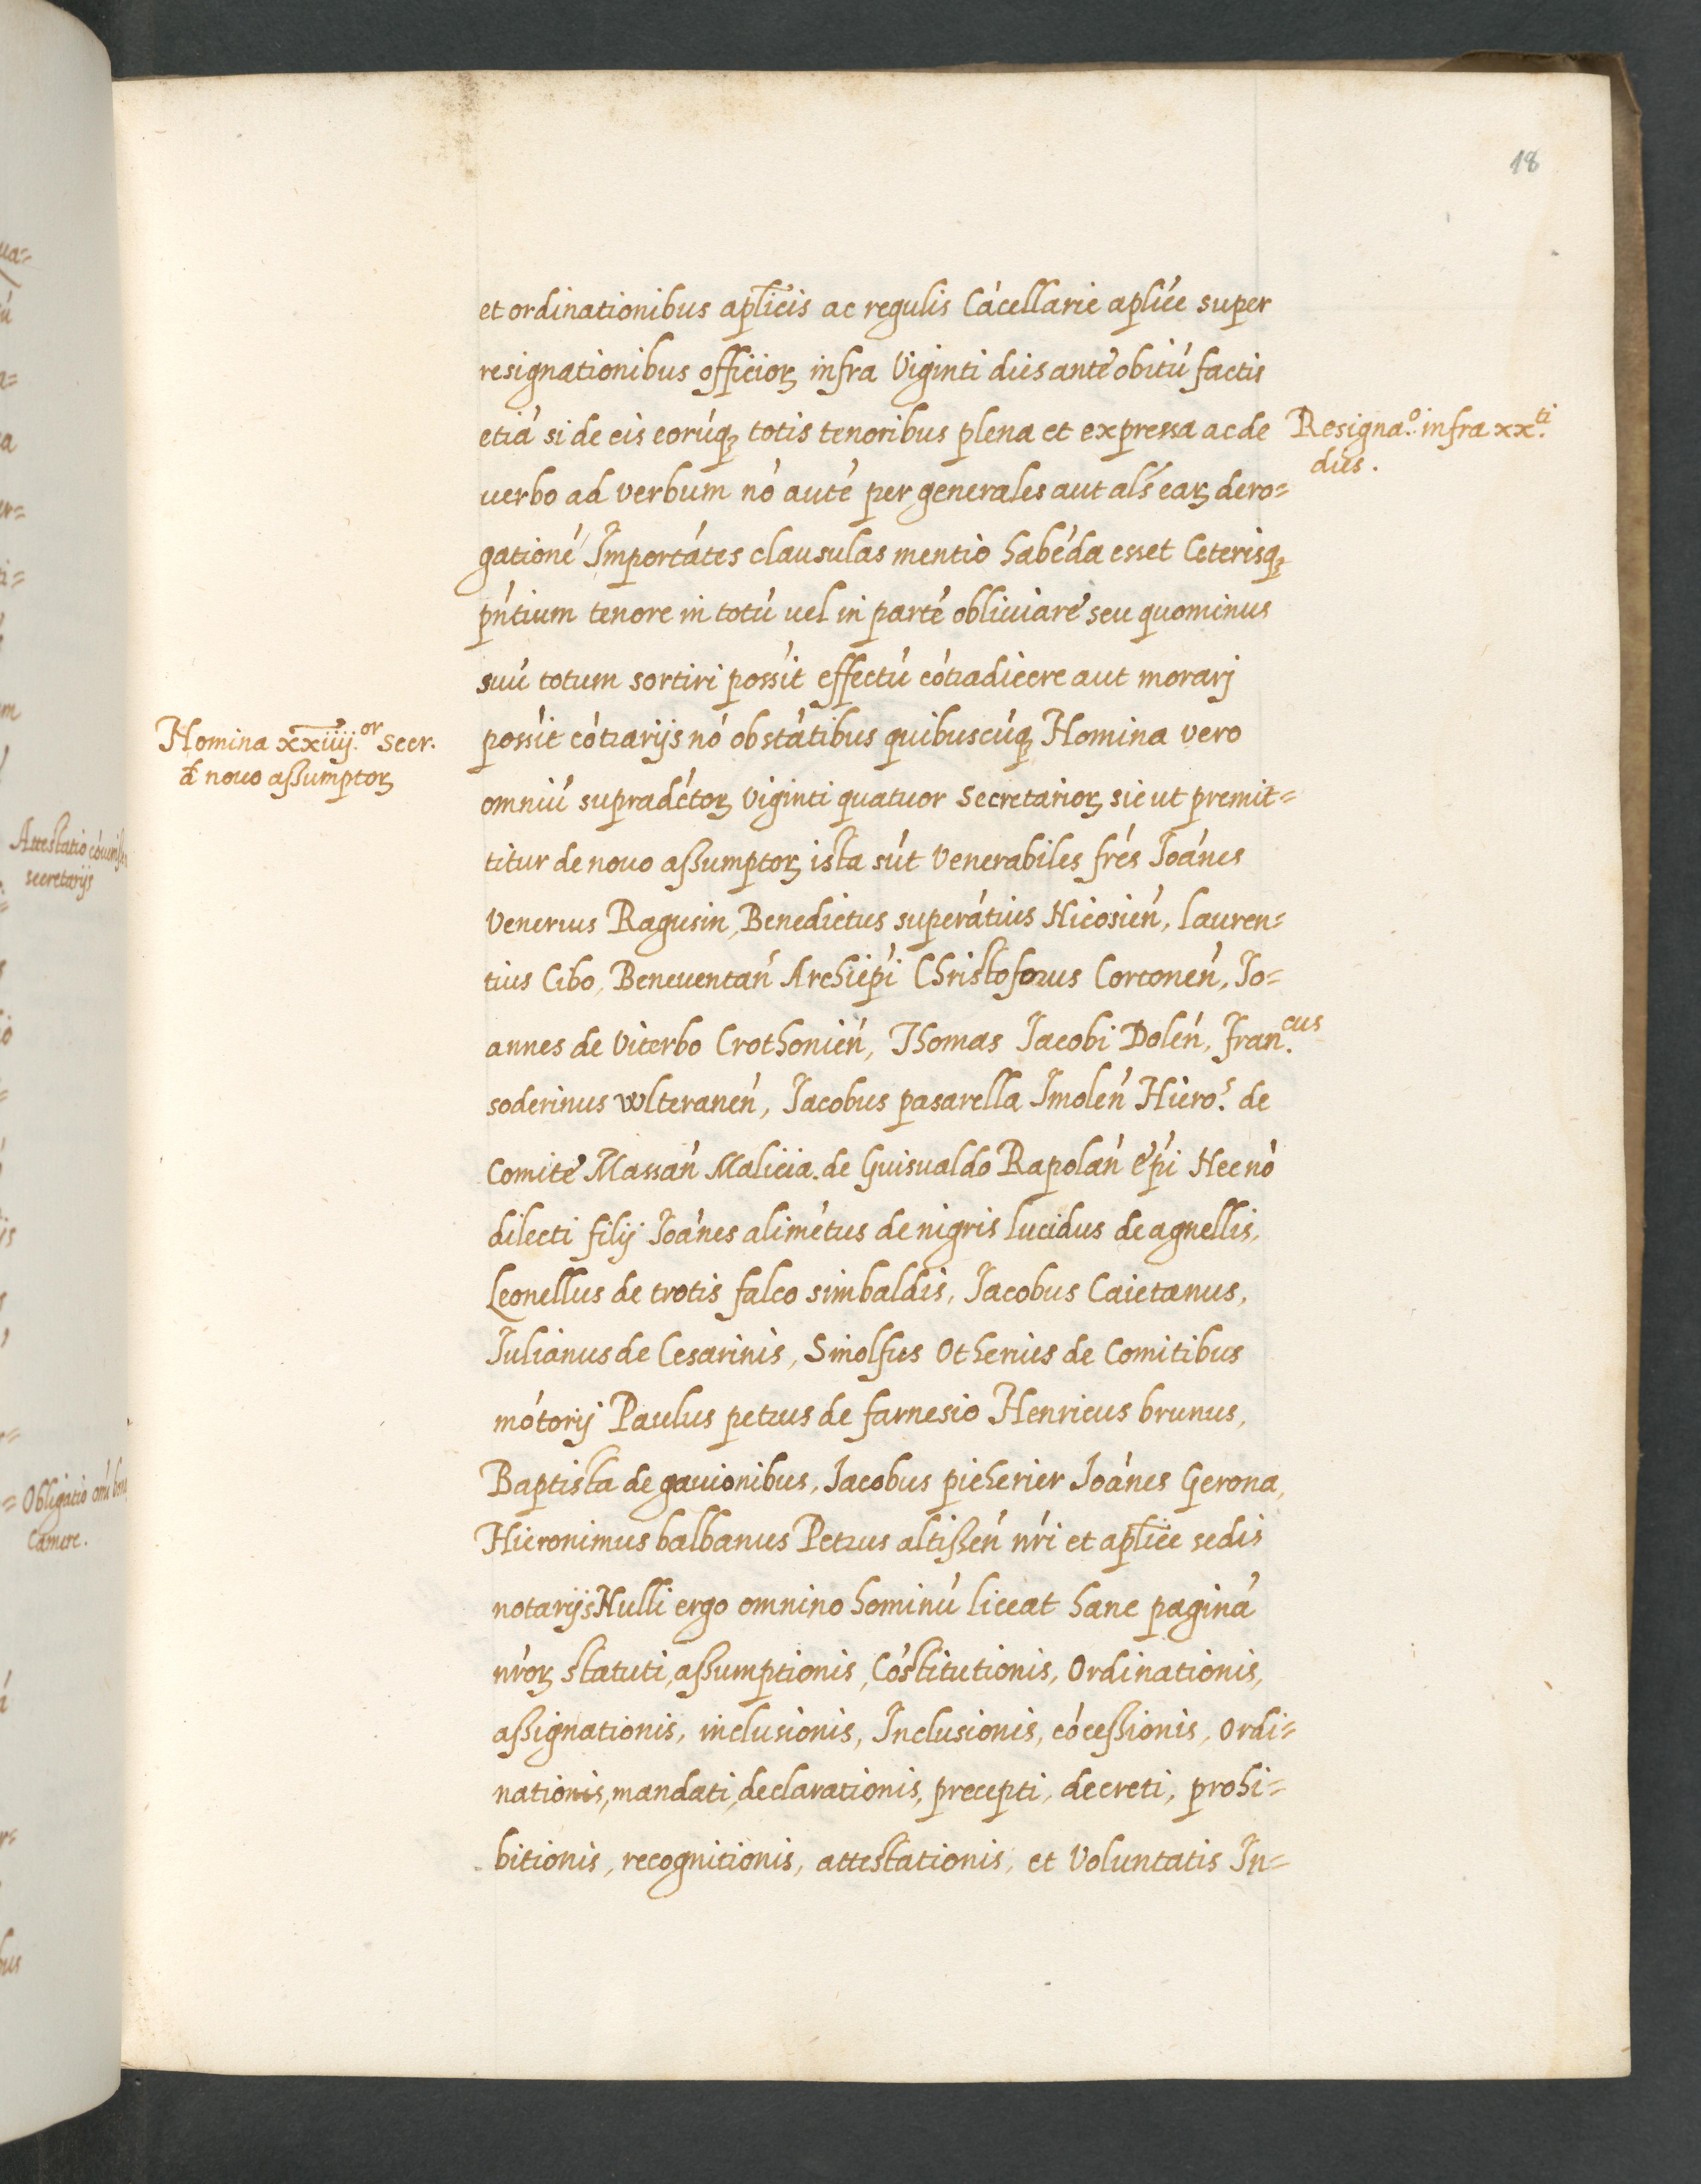 18
et ordinationibus aplicis ac regulis Cácellarie aplice super
resignationibus officioꝝ infra Viginti dies ante obitú factis
etiá si de eis eorúqꝫ totis tenoribus plena et expressa ac de
Resigna.º infra xx.ti
dies.
uerbo ad verbum nó auté per generales aut als earꝝ dero=
gationé Importátes clausulas mentio habéda esset Ceterisqꝫ
pńtium tenore in totú uel in parté obliuiare seu quominus
suú totum sortiri possit effectú cótradicere aut morarj
Homina xxiiij.or Secr.
de nouo assumptoꝝ
possit cótrarijs nó obstátibus quibuscúqꝫ Homina vero
omniú supradctoꝝ Viginti quatuor Secretarioꝝ sic ut premit=
titur de nouo assumptoꝝ ista sút Venerabiles frés Ioánes
Venerius Ragusin, Benedictus superátius Nicosień, lauren=
tius Cibo, Beneuentań Archiepi Christoforus Cortoneń, Io=
annes de Viterbo Crothonień, Thomas Iacobi Doleń, Fran.cus
soderinus wlteraneń, Iacobus pasarella Imoleń Hiero.s de
Comite Massań Malicia. de Guisualdo Rapolań épi Nec nó
dilecti filij Ioánes alimétus de nigris lucidus de agnellis,
Leonellus de trotis falco simbaldis, Iacobus Caietanus,
Iulianus de Cesarinis, Sinolfus Otherius de Comitibus
mótorij Paulus petrus de farnesio Henricus brunus,
Baptista de gauionibus, Iacobus picherier Ioánes Gerona,
Hieronimus balbanus Petrus altisseń nŕi et aplice sedis
notarijs Nulli ergo omnino hominú liceat hanc paginá
nŕoꝝ statuti, assumptionis, Cóstitutionis, Ordinationis,
assignationis, inclusionis, Inclusionis, cócessionis, Ordi=
nationis, mandati, declarationis, precepti, decreti, prohi=
bitionis, recognitionis, attestationis, et Voluntatis In=
Attestatio
secretarijs
Obligatio
Camere.